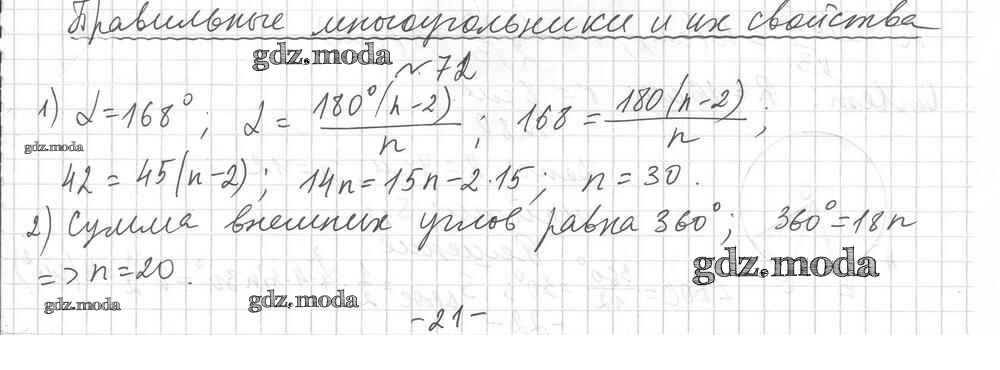 Правильные многоугольники и их свойства
gdz.moda
№ 72
1) α = 168°; α = 180°(n-2)/n; 168 = 180(n-2)/n;
gdz.moda
42 = 45(n-2); 14n = 15n - 2·15; n = 30.
2) Сумма внешних углов равна 360°; 360° = 18n
gdz.moda
=> n = 20.
gdz.moda
gdz.moda
-21-